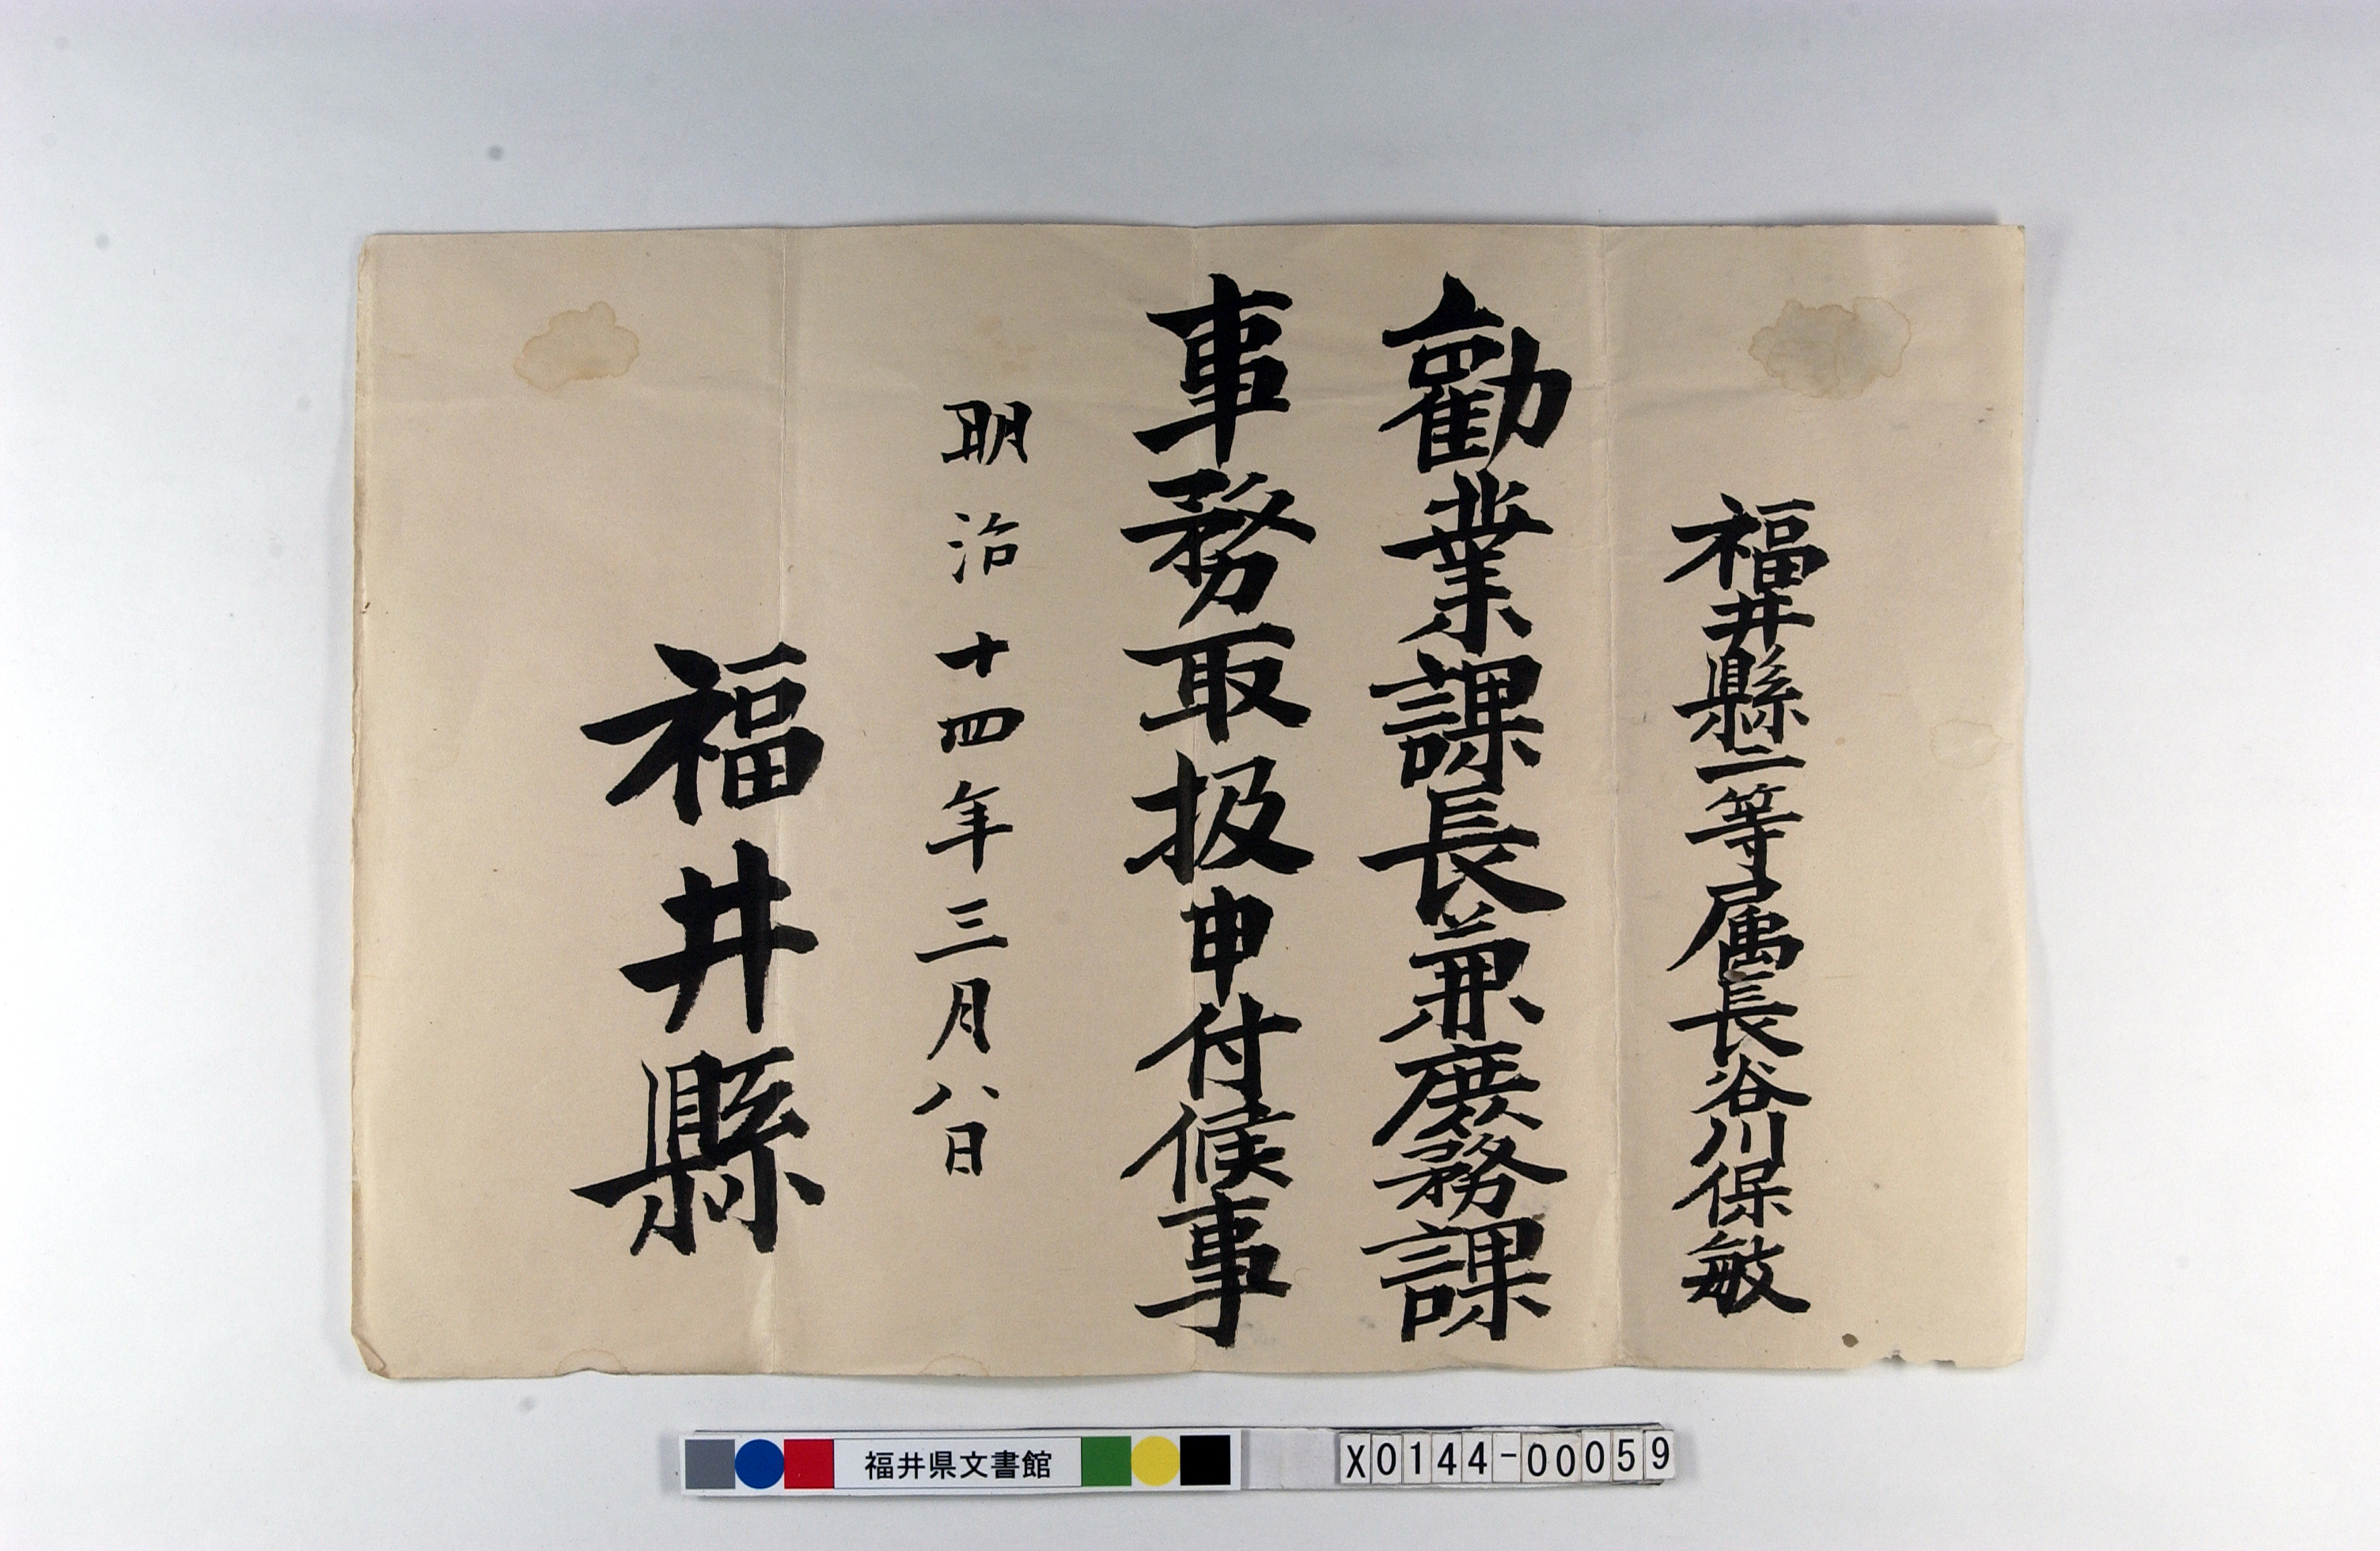 福井縣二等属長谷川保敏
勸業課長兼庶務課
事務取扱申付候事
明治十四年三月八日
福井縣
福井県文書館
X0144-00059